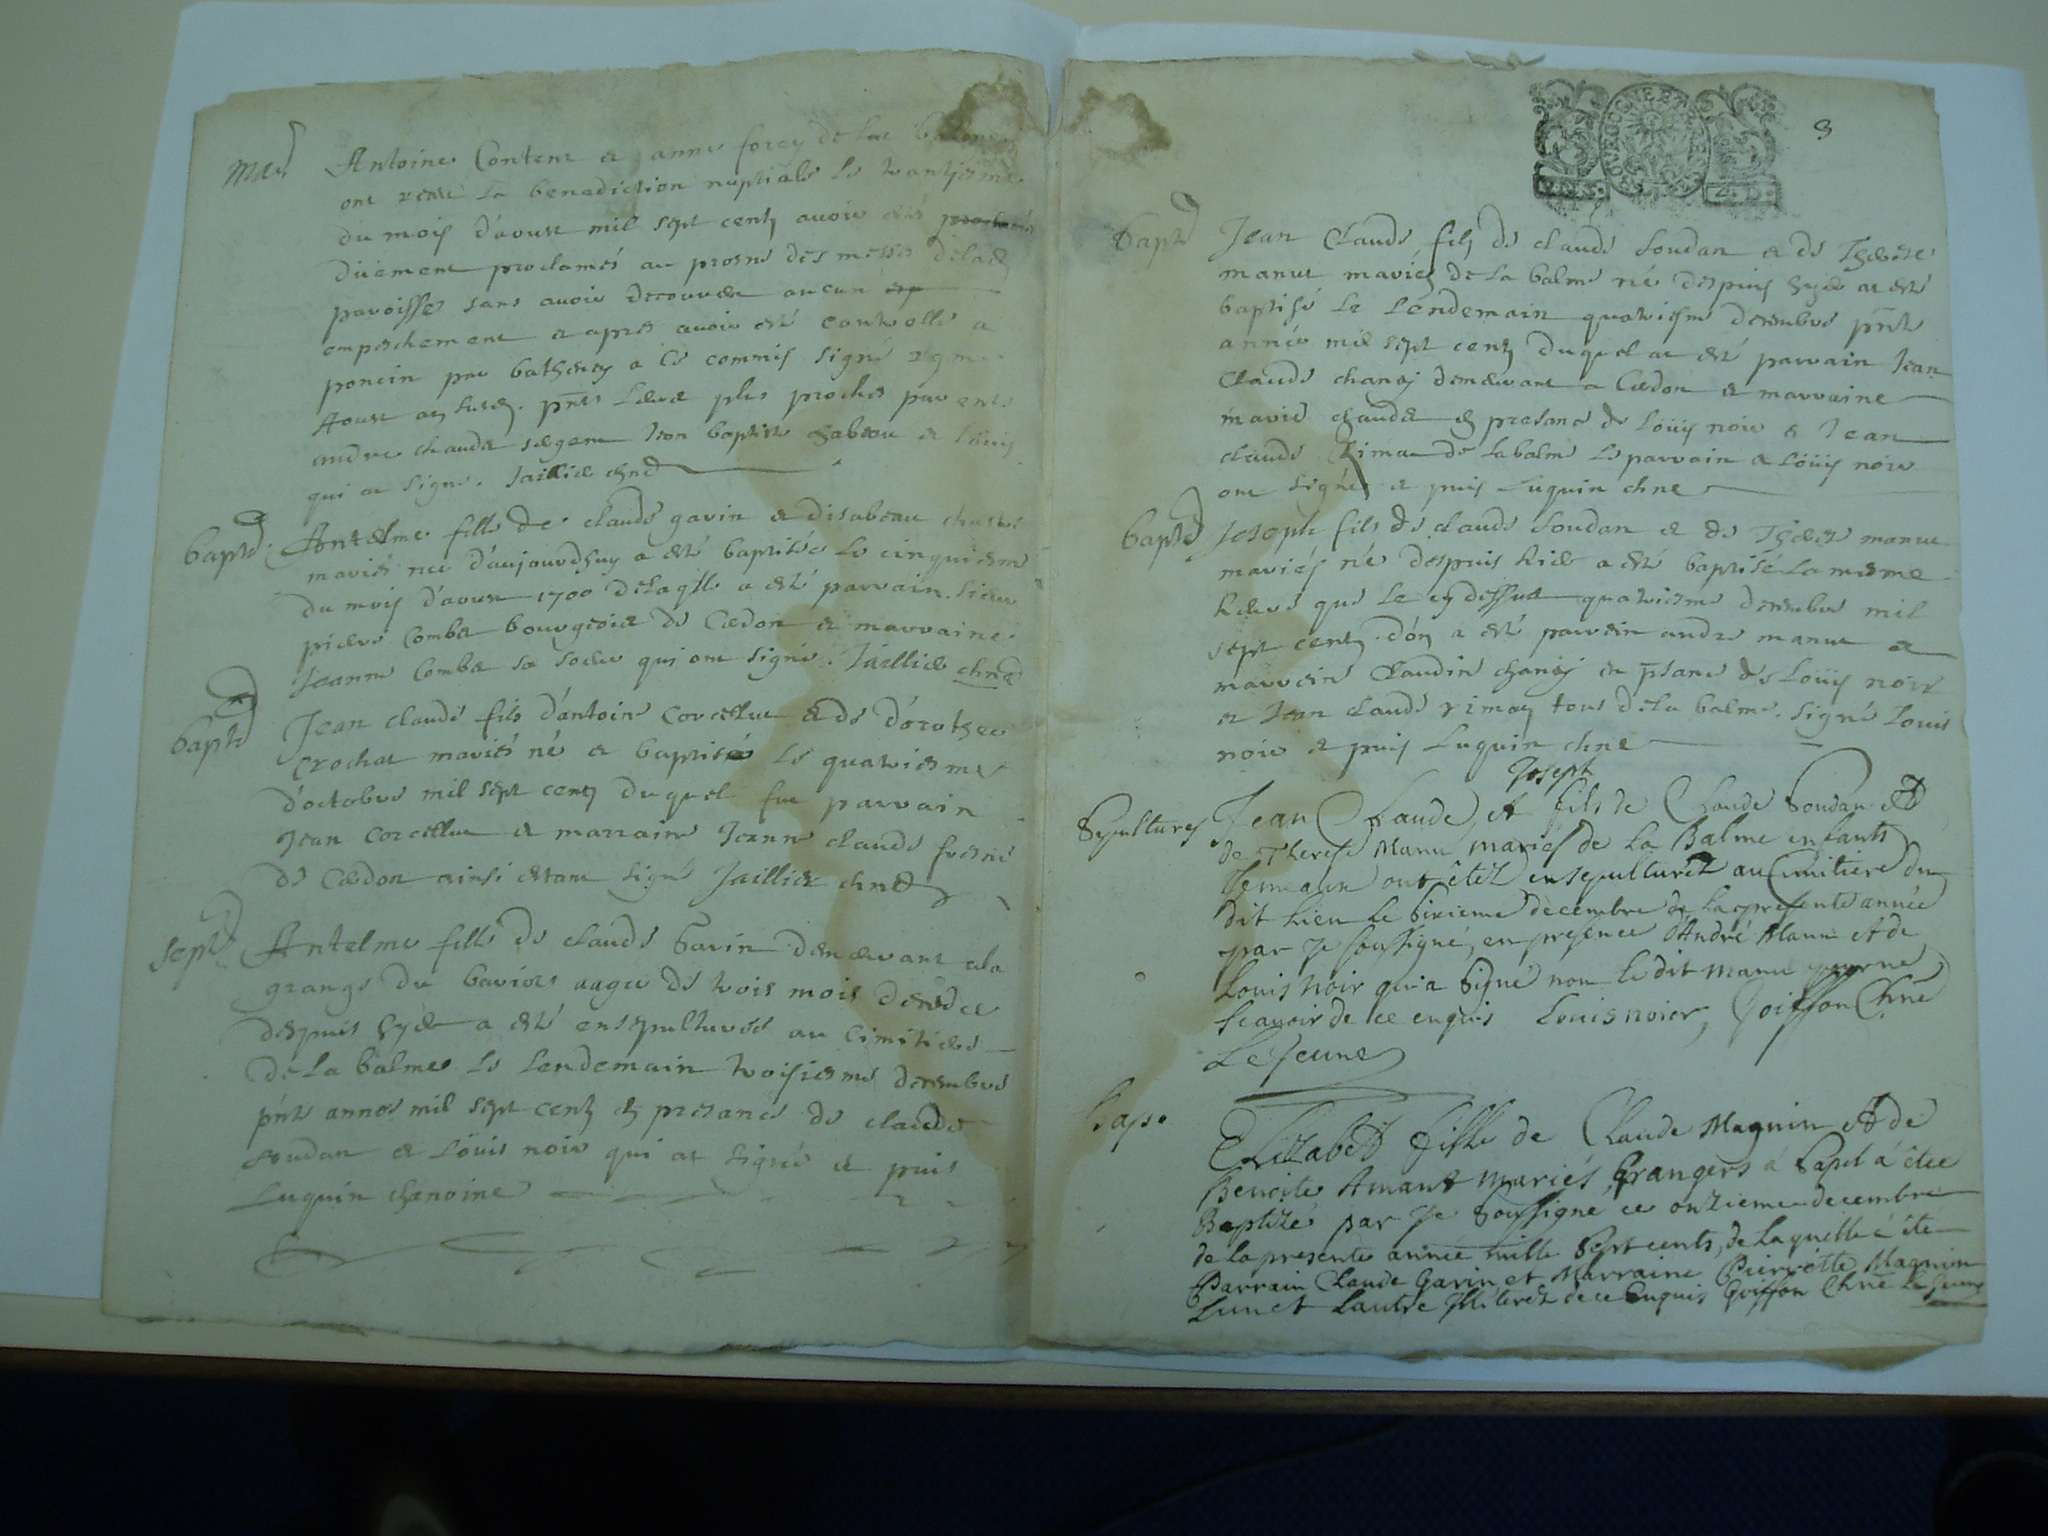 Mar
Antoine Content et anne forey de la balme
ont receu la benediction nuptiale le trantiesme
du mois d'aoust mil sept centz avoir esté
düement proclamés au prosne des messes de lad
paroisse sans avoir decouvert aucun
empeschement et apres avoir esté controllé a
poncin par batherey a ce commis signé
Aoust pnts leurs plus proches parents
andre chaudet Jean baptiste et Louis
qui a signé. Jaillier chne
bapt
Antelme fille de claude gavin et disabeau
mariés nee d'aujourdhuy a esté baptisée le cinquiesme
du mois d'aoust 1700 de laqlle a esté parrain. Sieur
pierre Combet bourgeois de Cerdon et marraine
Jeanne Combet sa soeur qui ont signé. Jaillier chne
bapt
Jean claude fils d'antoine Corcellut et de d'orothee
Crochat mariés né et baptisé le quatriesme
d'octobre mil sept centz duquel fut parrain
Jean Corcellut et marraine Jeanne claude
de Cerdon ainsi estant signé Jaillier chne
sept
Antelme fille de claude Gavin demeurant a la
grange du aagee de trois mois decedee
despuis hyer a esté ensepulturée au cimitiere
de la balme le lendemain troisiesme decembre
pnte annee mil sept centz en presance de claude
soudan et Louis noir qui a signé et puis
Luquin chanoine
3
bapt
Jean Claude filz de claude Soudan et de Therese
manut mariez de la balme né despuis hyer at esté
baptisé le lendemain quatriesme decembre pnte
année mil sept centz duquel at esté parrain Jean
Claude chanej demeurant a Cerdon et marraine
marie chaudet en presance de Loüis noir et Jean
claude Rimat de la balme le parrain et Loüis noir
ont signé et puis Luquin chne
bapt
Joseph fils de claude Soudan et de Therese manut
mariés né despuis hier a esté baptisé la mesme
heure que le cy dessus quatriesme decembre mil
sept centz d'on a esté parrein andre manut et
marreine Claudin chanej en psance de Loüis noir
et Jean claude rimat tous de la balme. Signé Louis
noir et puis Luquin chne
Sepultures
Joseph
Jean Claude, et fils de Claude Soudan Et
de Therese Manu mariés de La Balme enfants
Jumaux ont étéz ensepulturéz au Cimitiere du
dit Lieu le sixieme decembre de la presente année
par Je soussigné, en presence d'André Manu et de
Louis Noir qui a signé non le dit Manu pour ne
scavoir de ce enquis Louis noier, Goiffon Chne
Le Jeune
bap.
Elizabet fille de Claude Magnin Et de
Benoite Amant Mariés Grangers á Sapel á étée
Baptizée par Je soussigné ce onzieme decembre
de la presente année mille Sept cents, de laquelle á été
Parrain Claude Gavin et Marraine Pierrette Magnin
Lun et Lautre Illiteréz de ce Enquis Goiffon Chne Le Jeune